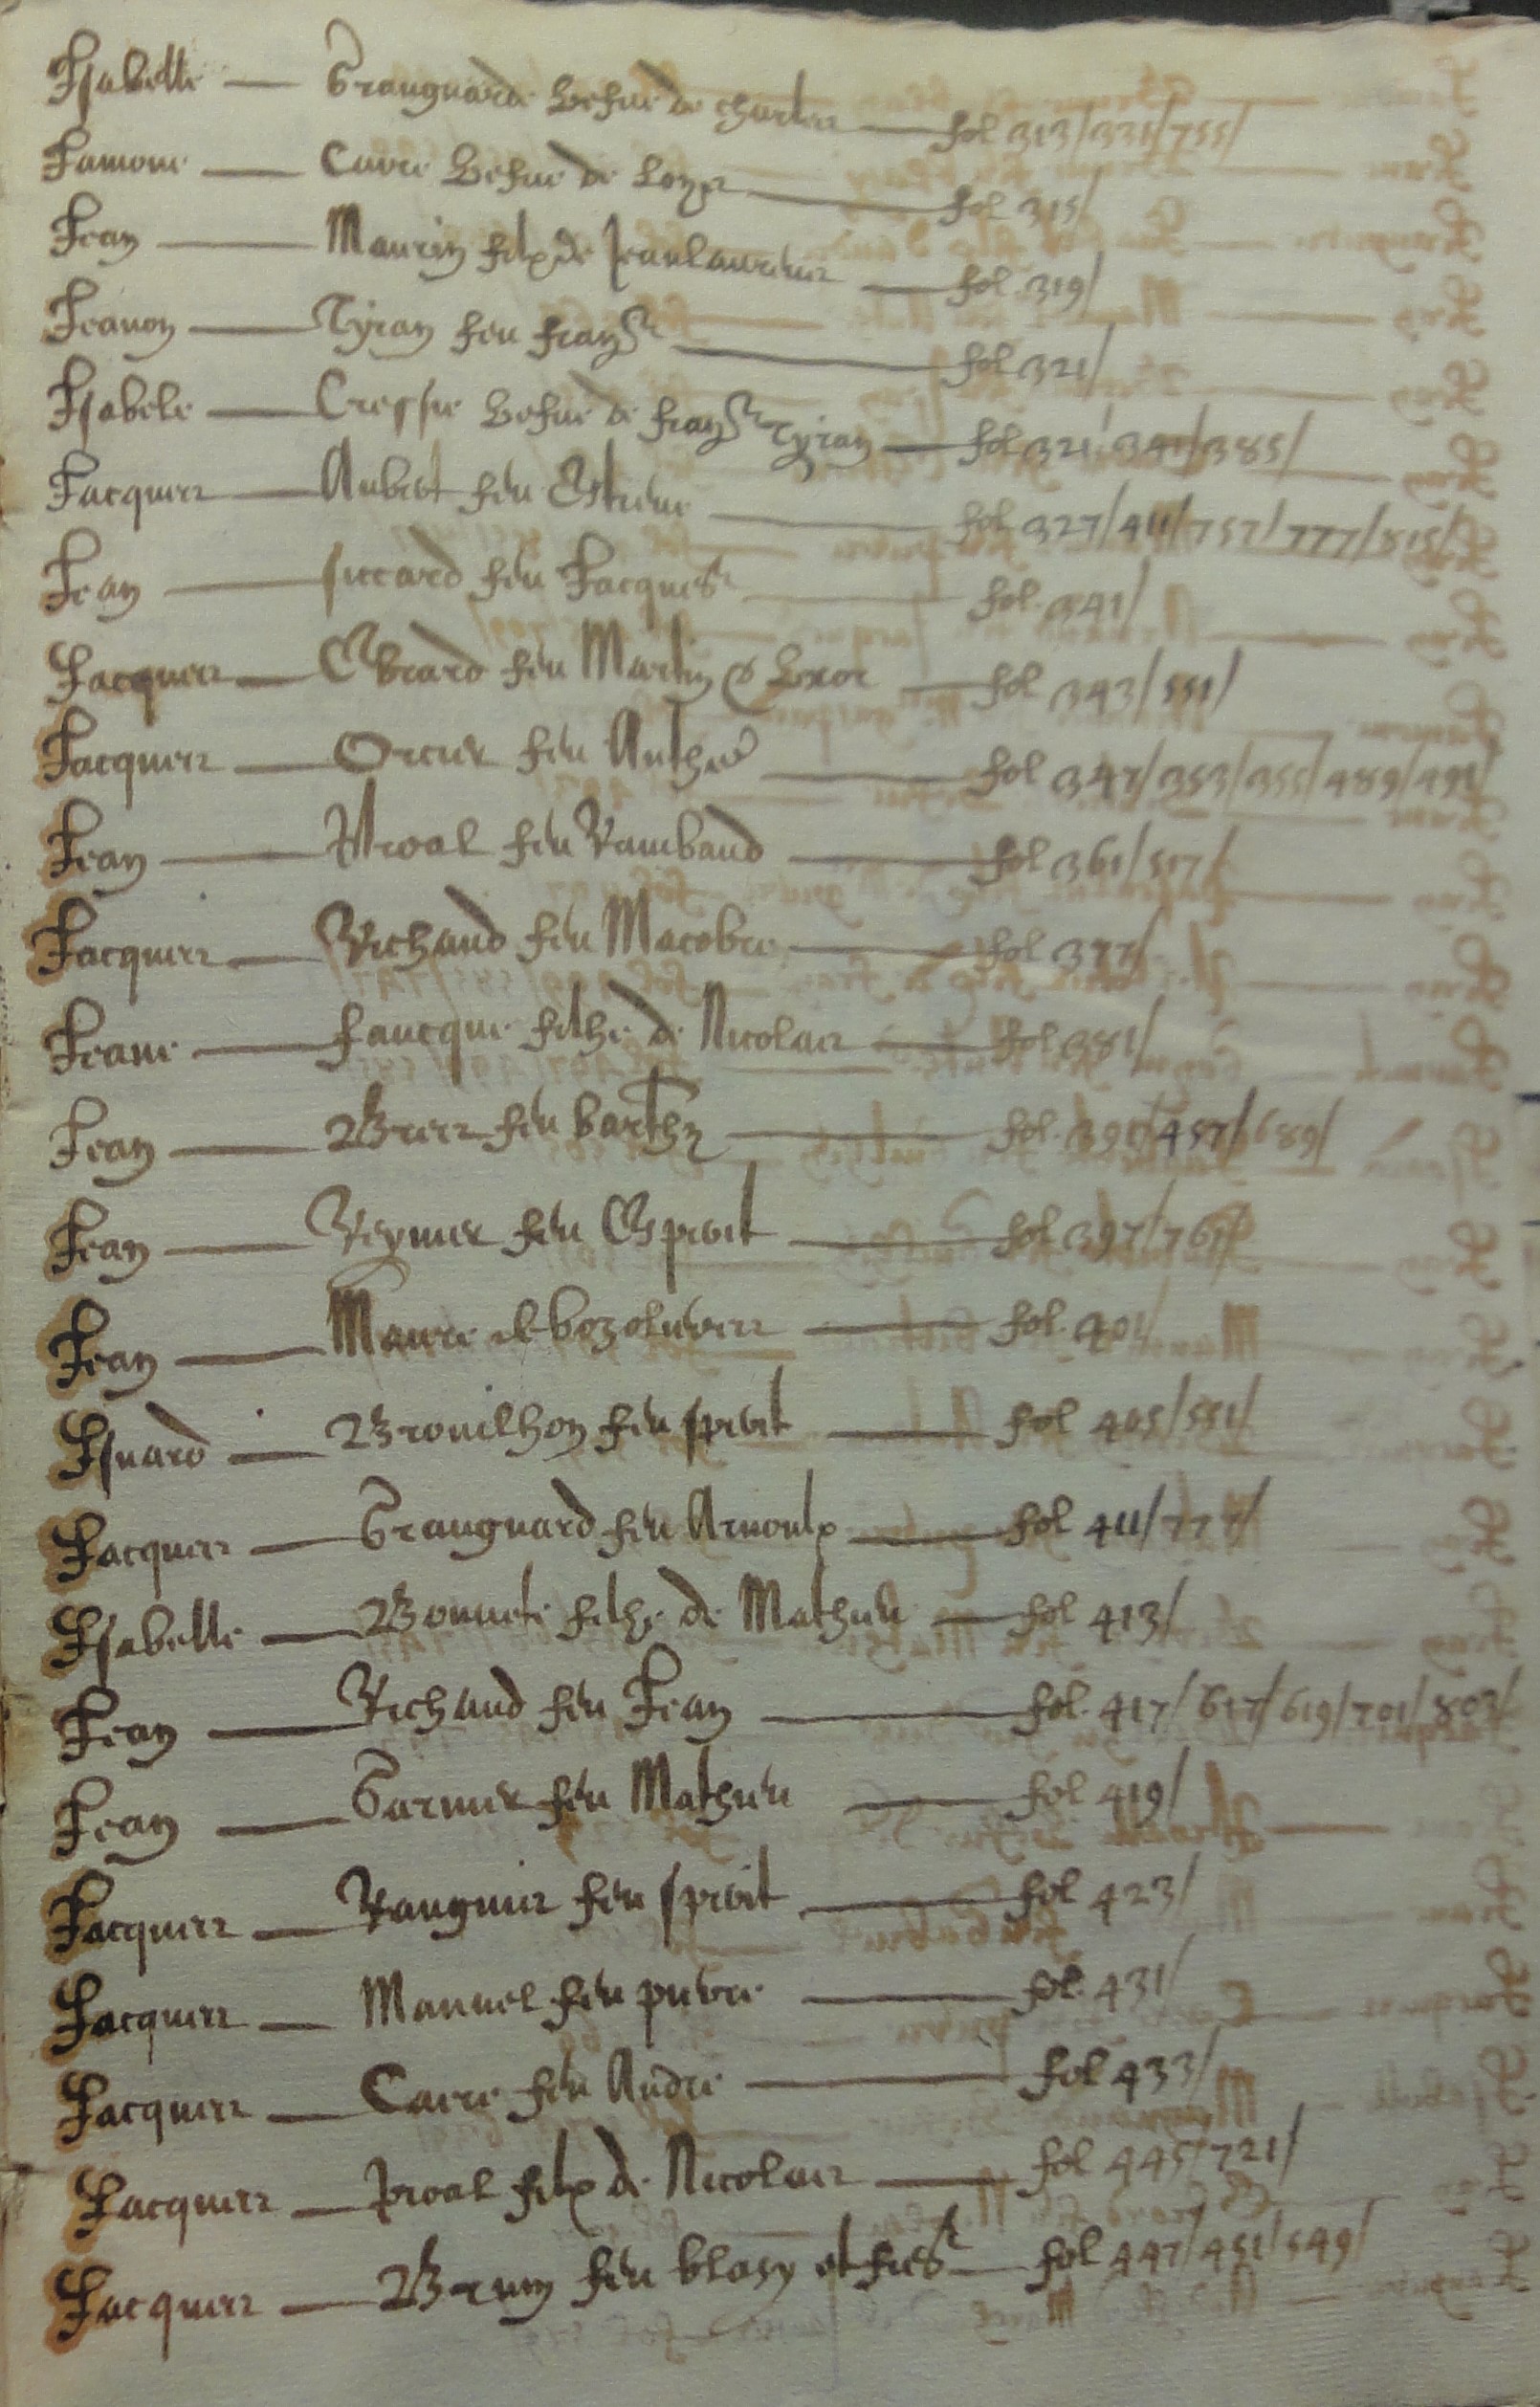 Isabelle — Granguarde vefue de charles — fol 313/331/755/
Jamone — Caire vefue de — fol 315/
Jean — Maurin filz de Jean laurens — fol 319/
Jeanon — Tyran feu franc — fol 321/
Isabele — Cressie vefue de franc Tyran — fol 321/341/385/
Jacques — Aubert feu Estiene — fol 327/411/757/777/815/
Jean — siccard feu Jacques — fol 341/
Jacques — Evrard feu Martin & — fol 343/551/
Jacques — Orcier feu Anthe — fol 347/353/355/489/491/
Jean — Proal feu Rambaud — fol 361/517/
Jacques — Richaud feu Macobre — fol 377/
Jeane — faucque filhe de Nicolas — fol 381/
Jean — Bres feu barthy — fol 391/457/689/
Jean — Reynier feu Esperit — fol 397/761/
Jean — Maure — fol 401/
Isnard — Brouilhon feu sperit — fol 405/551/
Jacques — Granguard feu Arnoulx — fol 411/777/
Isabelle — Bonnete filhe de Mathieu — fol 413/
Jean — Richaud feu Jean — fol 417/617/619/701/803/
Jean — Garnier feu Mathieu — fol 419/
Jacques — Rangnis feu sperit — fol 423/
Jacques — Manuel feu pierre — fol 431/
Jacques — Caire feu Andre — fol 433/
Jacques — Proal filz de Nicolas — fol 445/721/
Jacques — Brun feu blasy et — fol 447/451/549/